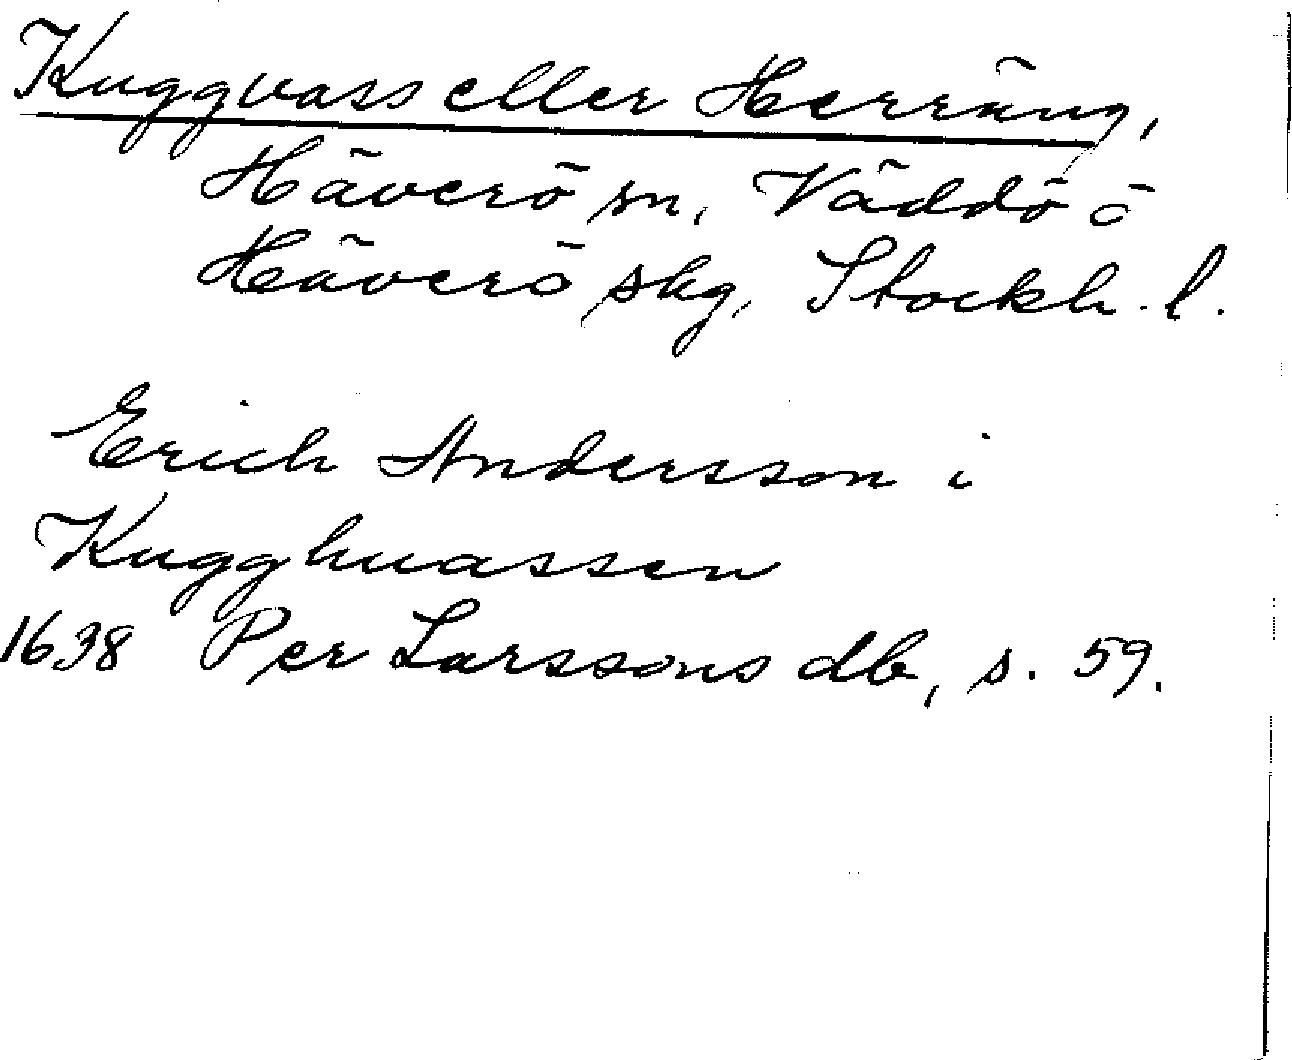 Kuggvass eller Herräng,
Häverö sn, Väddö ö
Häverö skg, Stockh. l.
Erich Andersson i
Kugghuassen
1638 Per Larssons db, s. 59.